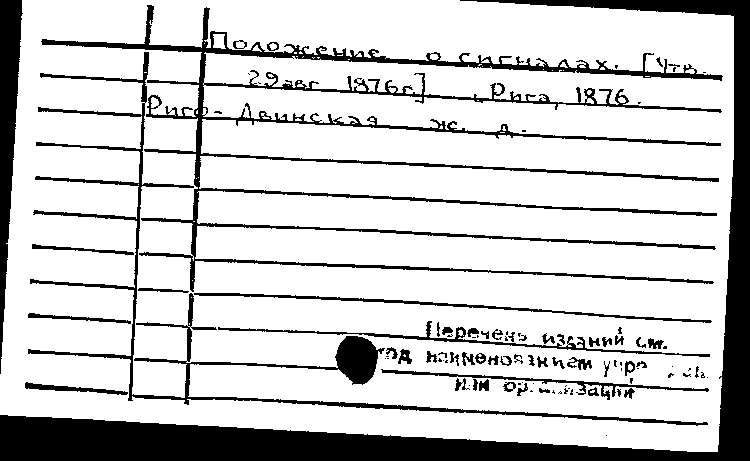 Положение о сигналах. [Утв.
29 авг 1876г.] Рига, 1876.
Риго-Двинская ж. д.
Перечень изданий см.
под наименованием
или организации